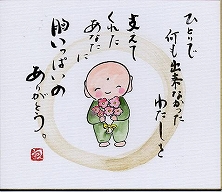 ひとりで
何も出来なかった
わたしを
支えて
くれた
あなたに
胸いっぱいの
ありがとう。